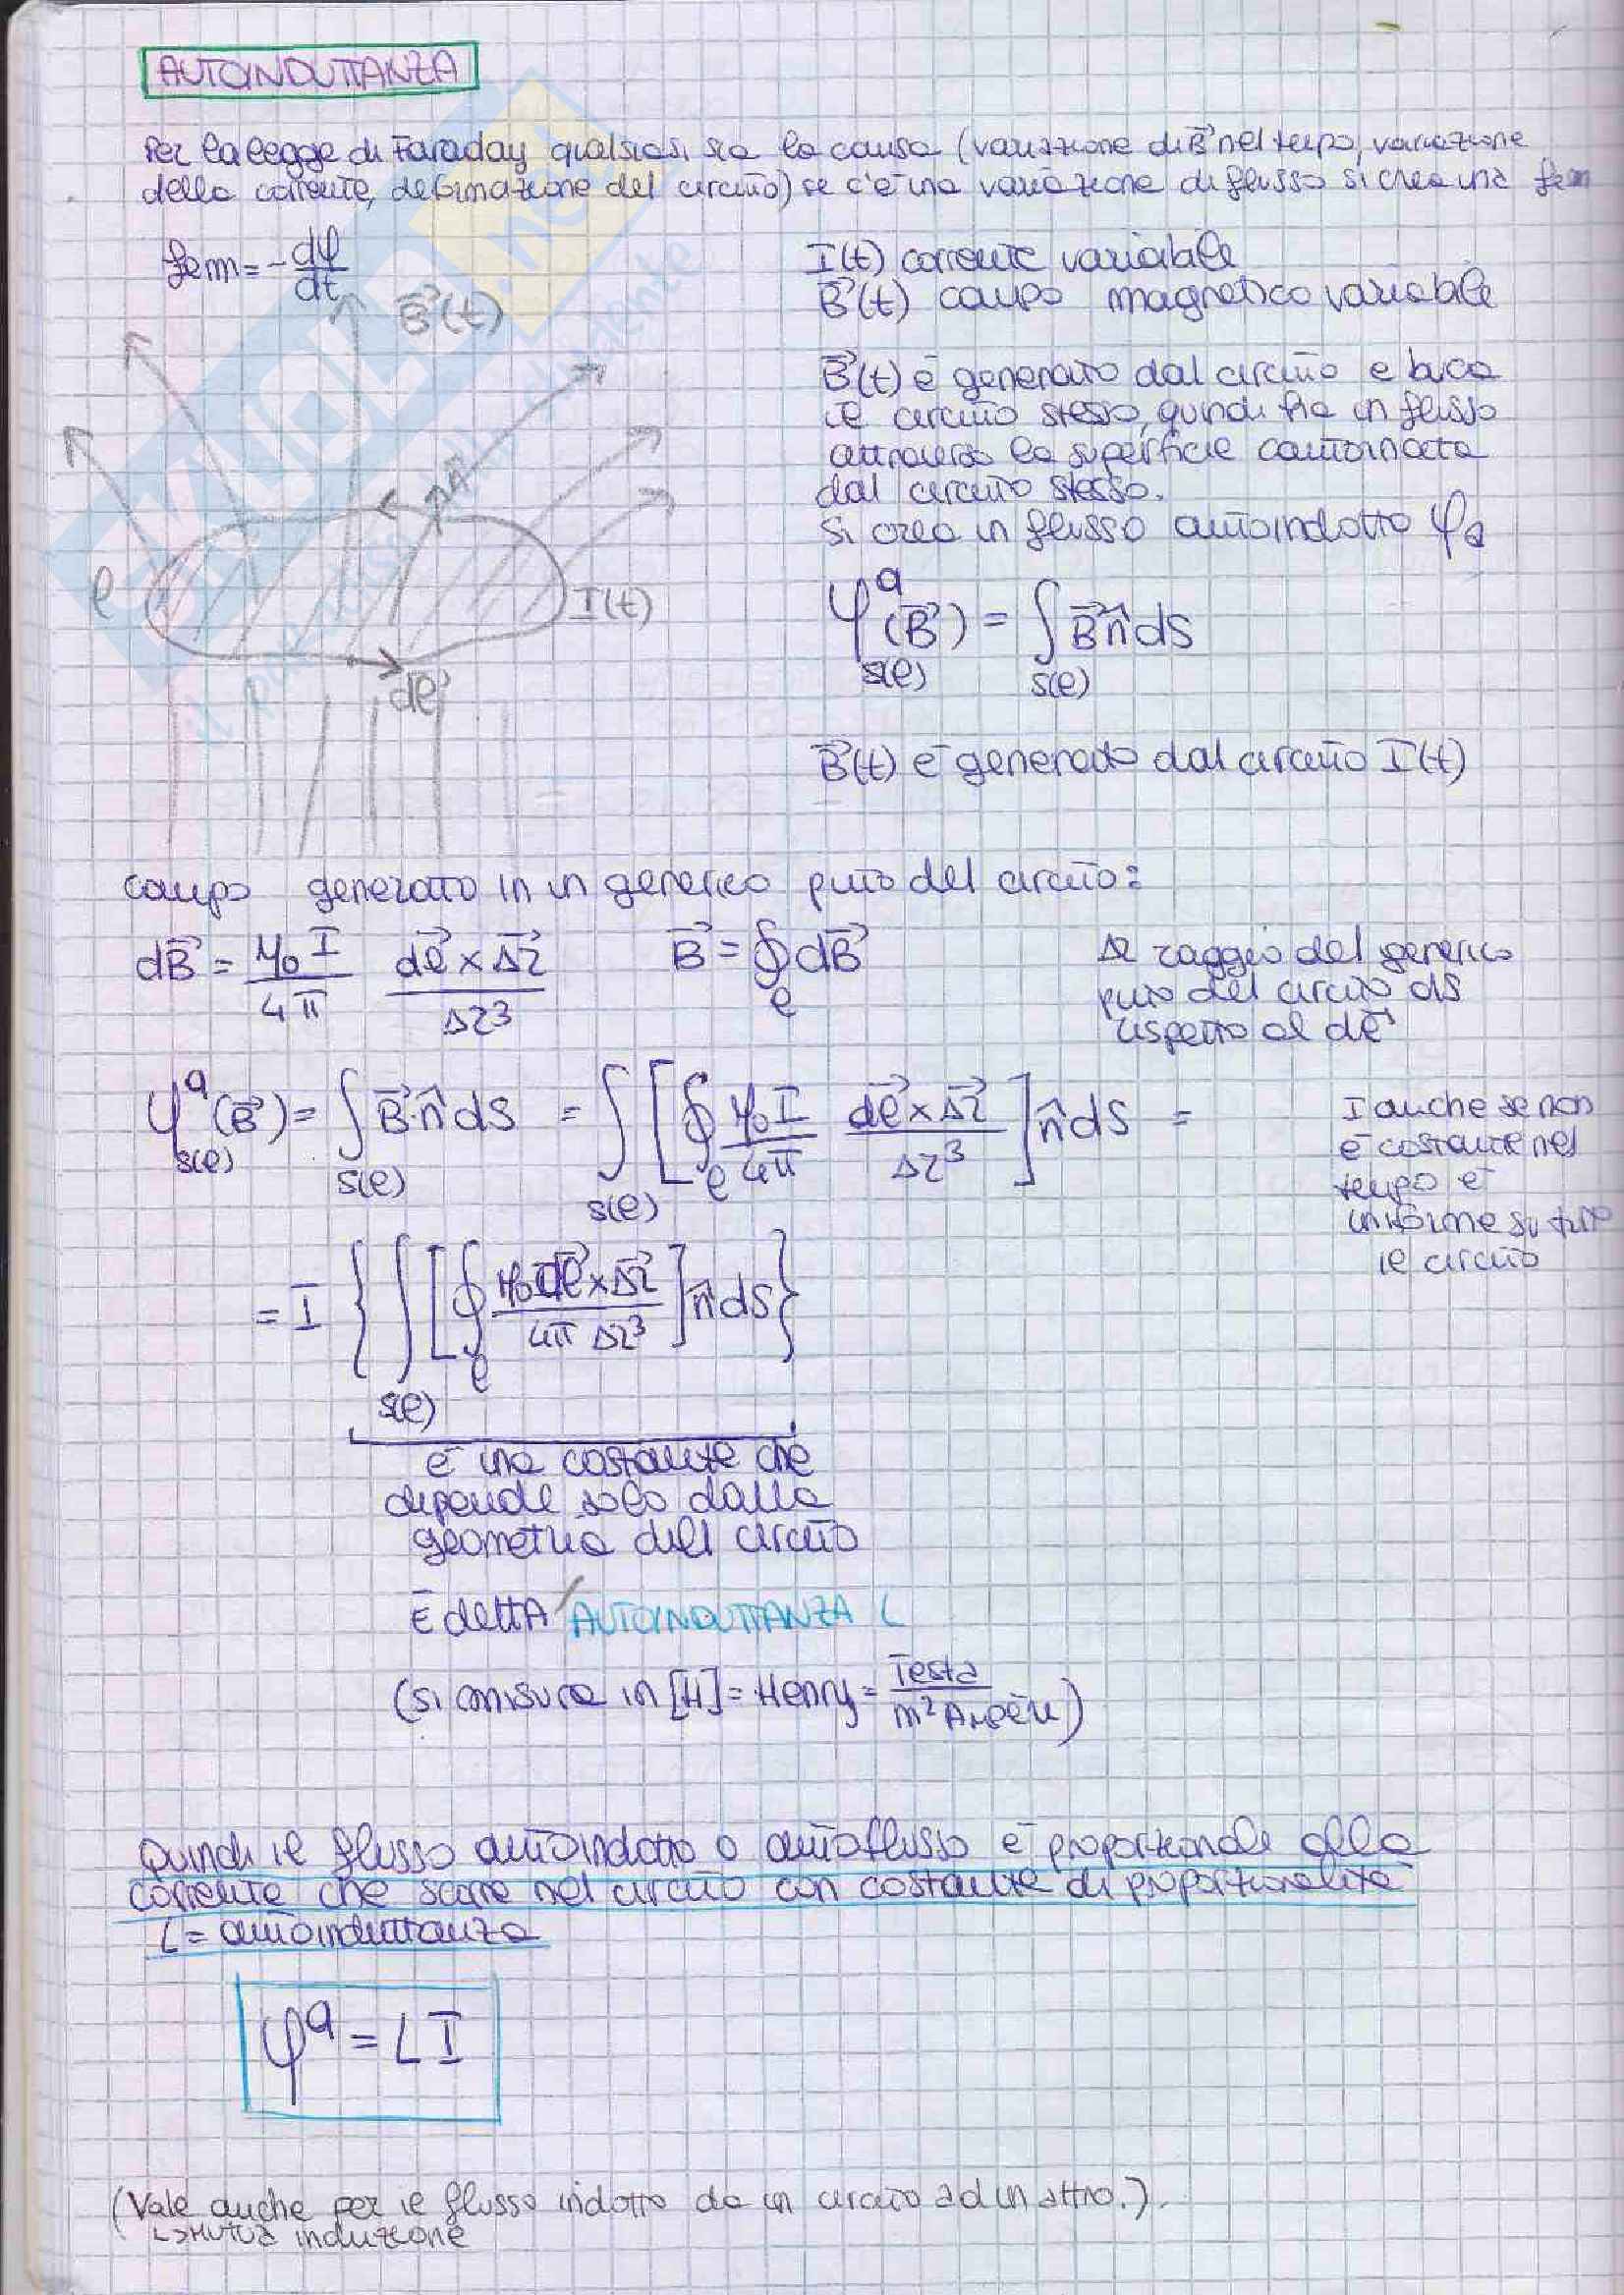 AUTOINDUTTANZA
Per la legge di Faraday qualsiasi sia la causa (variazione di B⃗ nel tempo, variazione
della corrente, deformazione del circuito) se c'è una variazione di flusso si crea una fem
fem = - dφ/dt
B⃗(t)
I(t) corrente variabile
B⃗(t) campo magnetico variabile
B⃗(t) è generato dal circuito e buca
il circuito stesso, quindi ha un flusso
attraverso la superficie contornata
dal circuito stesso.
Si crea un flusso autoindotto φa
l
I(t)
dl⃗
φᵃ(B⃗) = ∫ B⃗ n̂ dS
S(l) S(l)
B⃗(t) è generato dal circuito I(t)
campo generato in un generico punto del circuito:
dB⃗ = μ₀ I/4π dl⃗ × Δr⃗/Δr³ B⃗ = ∮ₗ dB⃗
Δr raggio del generico
punto del circuito dS
rispetto al dl⃗
φᵃ(B⃗) = ∫ B⃗·n̂ dS = ∫ [∮ₗ μ₀ I/4π dl⃗ × Δr⃗/Δr³] n̂ dS =
S(l) S(l) S(l)
I anche se non
è costante nel
tempo è
uniforme su tutto
il circuito
= I {∫ [∮ₗ μ₀ dl⃗ × Δr⃗/4π Δr³] n̂ dS}
S(l)
è una costante che
dipende solo dalla
geometria del circuito
È detta AUTOINDUTTANZA L
(si misura in [H] = Henry = Tesla/m² Ampère)
Quindi il flusso autoindotto o autoflusso è proporzionale alla
corrente che scorre nel circuito con costante di proporzionalità
L = autoinduttanza
φᵃ = L I
(Vale anche per il flusso indotto da un circuito ad un altro.).
↳ Mutua induzione